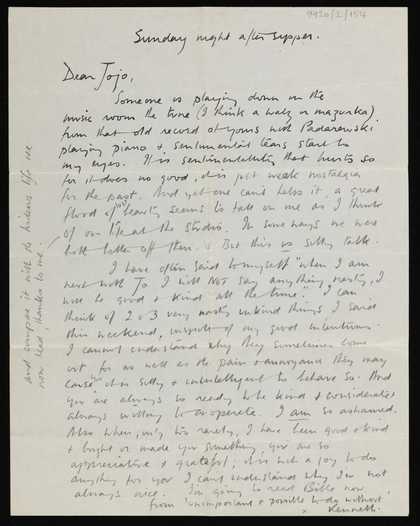 9920/2/154
Sunday night after supper.
Dear Jojo,
Someone is playing down in the
music room the tune (I think a waltz or mazurka)
from that old record of yours with Paderewski
playing piano & sentimental tears start to
my eyes. It is sentimentality that hurts so
for it does no good, it is just weak nostalgia
for the past. And yet one can't help it, a great
flood of beauty seems to fall on me as I think
of our life at the studio. In some ways we were
both better off then. But this is silly talk.
I have often said to myself "when I am
next with Jo I will not say anything nasty, I
will be good & kind all the time." I can
think of 2 or 3 very nasty unkind things I said
this weekend, inspite of my good intentions.
I cannot understand why they sometimes come
out, for as well as the pain & annoyance they may
cause it is silly & unintelligent to behave so. And
you are always so ready to be kind & considerate &
always willing to cooperate. I am so ashamed.
Also when, only too rarely, I have been good & kind
& bright or made you something, you are so
appreciative & grateful; it is such a joy to do
anything for you I can't understand why I'm not
always nice. I'm going to read now
from "unimportant & possible to do without"
Kenneth.
and compare it with the hideous life we
now lead, thanks to me